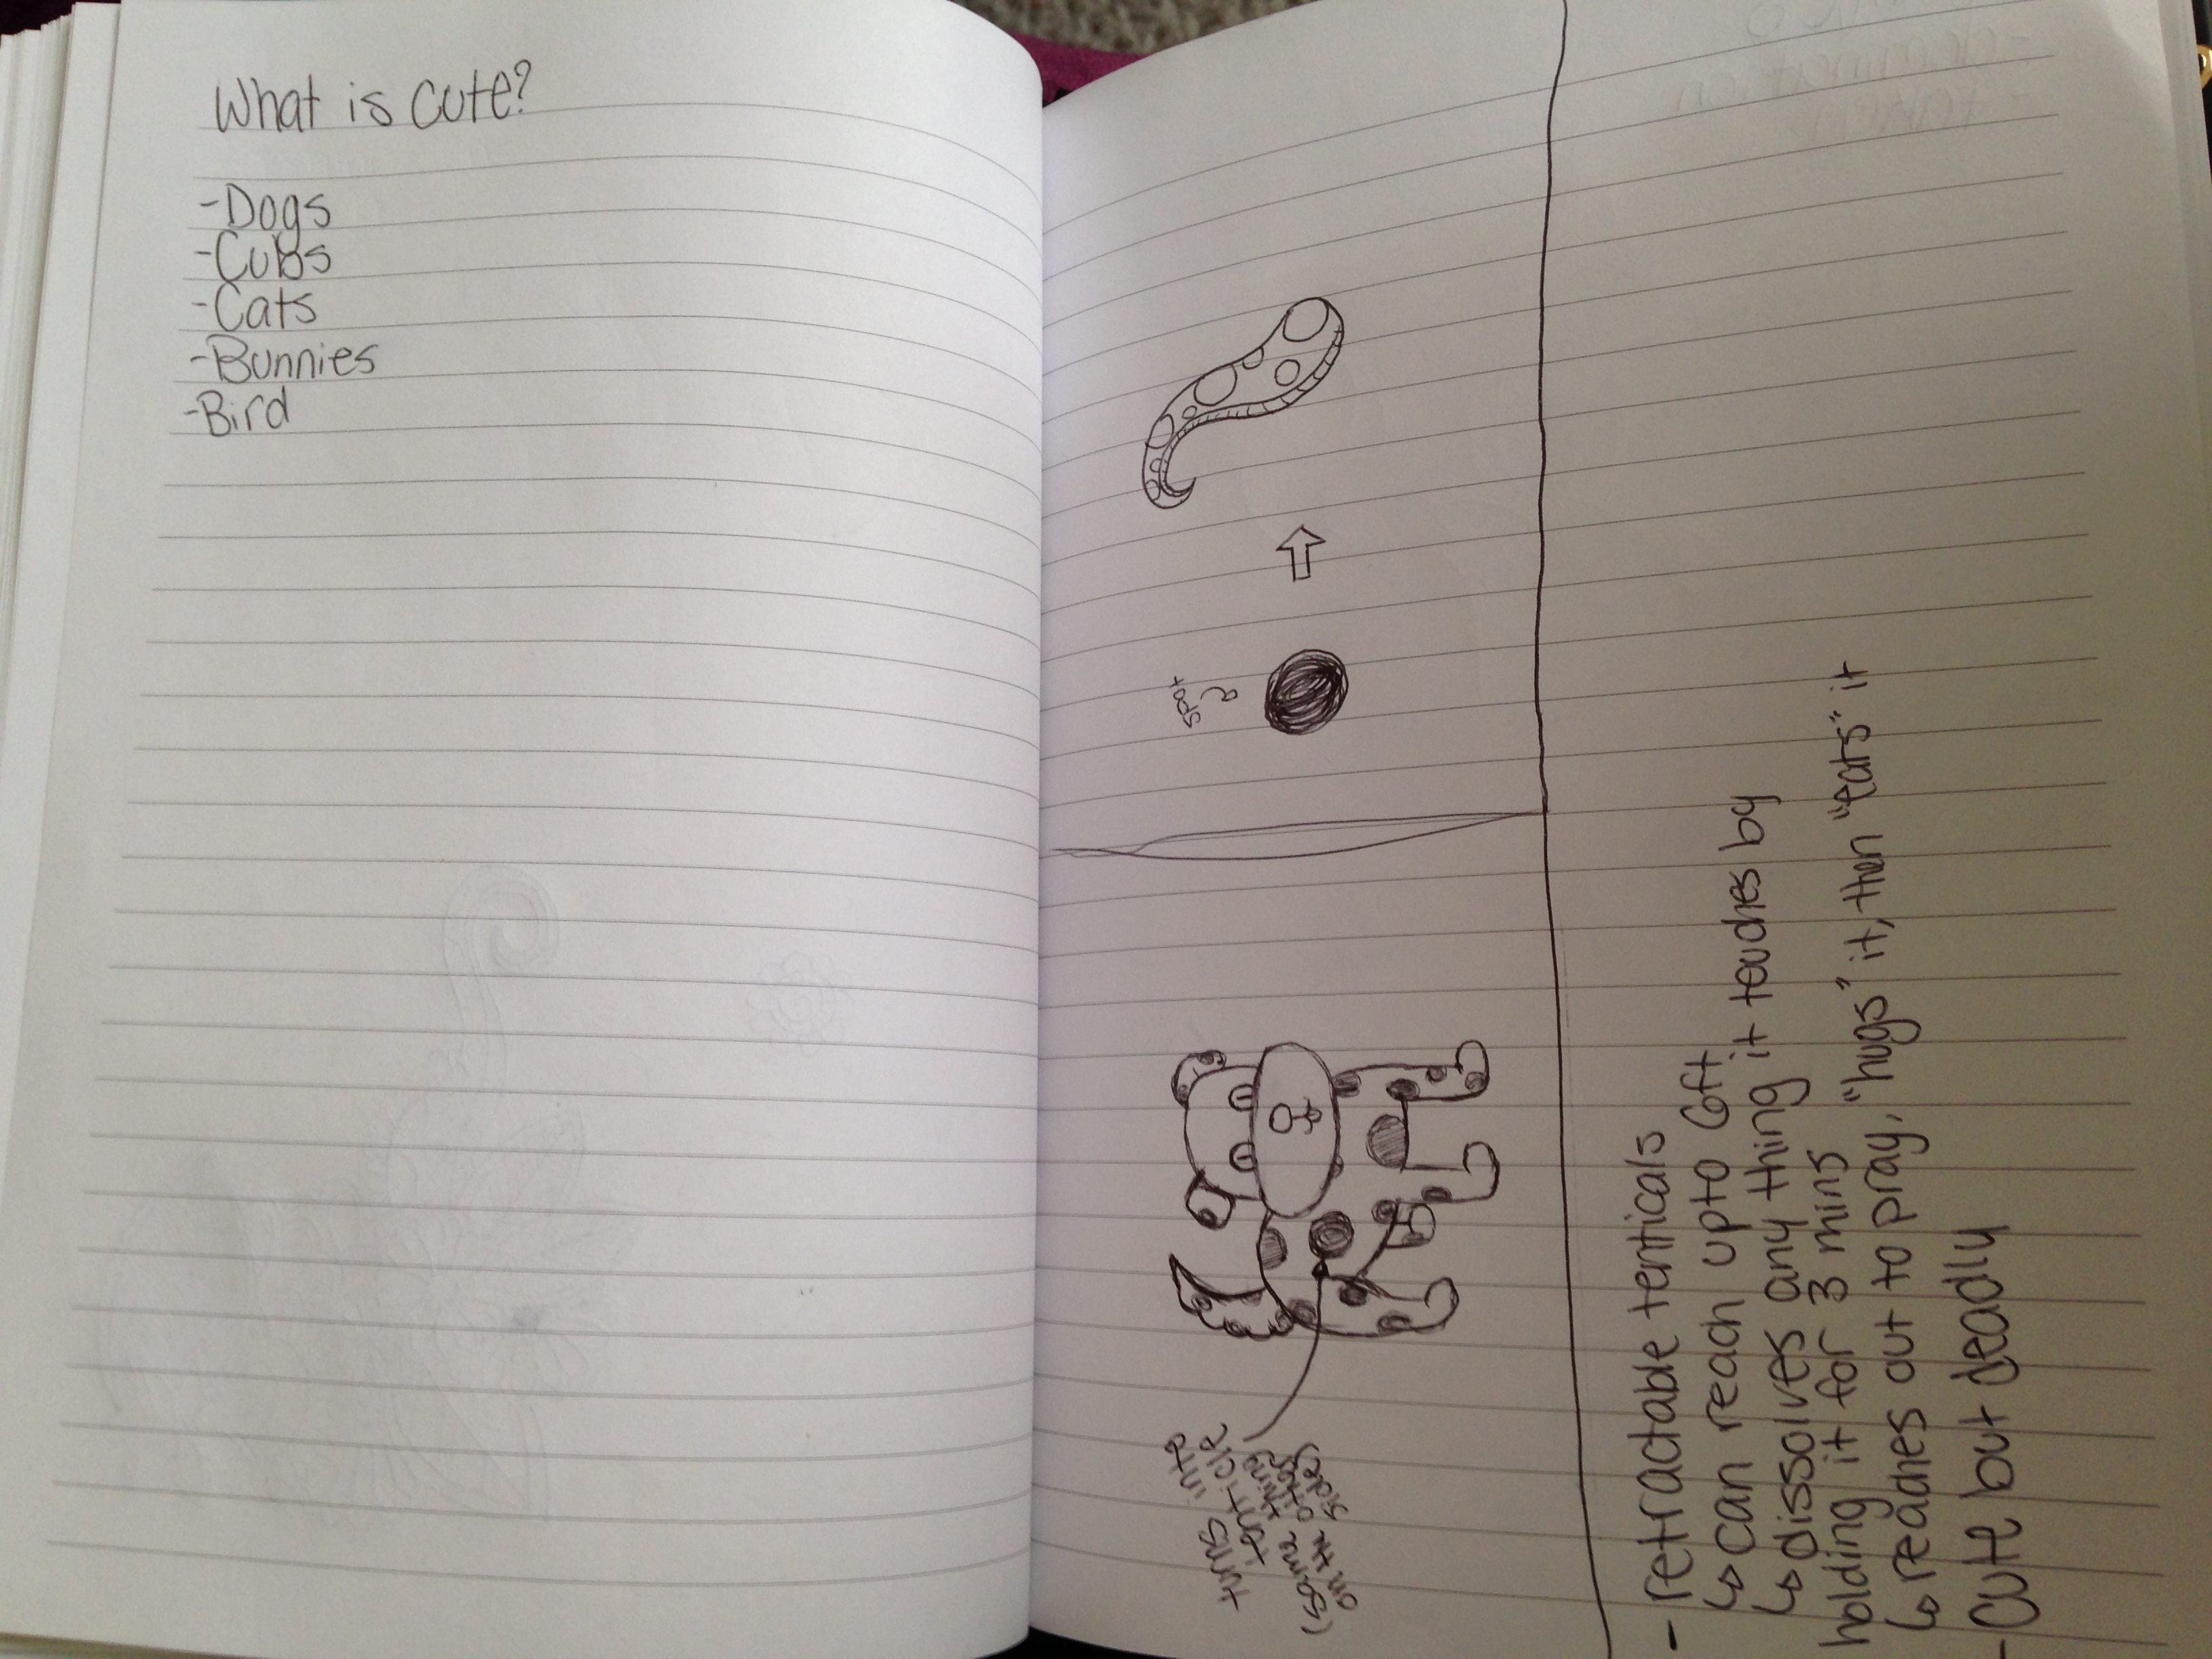 What is cute?
-Dogs
-Cubs
-Cats
-Bunnies
-Bird
turns into
tenticle
(same thing
on the other
side)
a spot
- retractable tenticals
↳ can reach upto 6ft
↳ dissolves any thing it touches by
holding it for 3 mins
↳ reaches out to pray, "hugs" it, then "eats" it
- cute but deadly